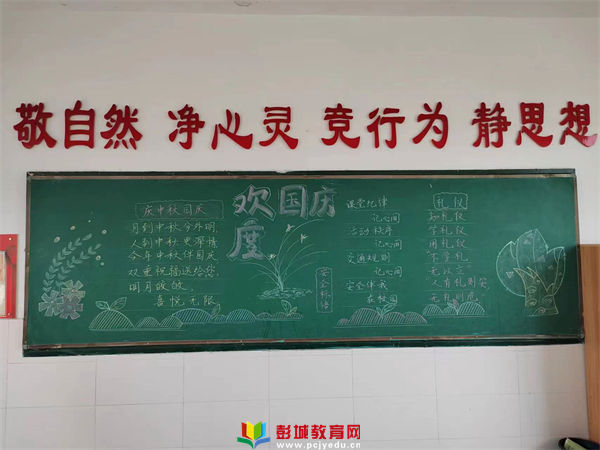 敬自然 净心灵 竞行为 静思想
欢度国庆
庆中秋国庆
月到中秋分外明,
人到中秋更深情
今年中秋伴国庆
双重祝福送给您,
明月皎皎,
喜悦无限
安全标语
课堂纪律
记心间
活动秩序
记心间
交通规则
记心间
安全伴我
在校园
礼仪
知礼仪
学礼仪
用礼仪
不学礼
无以立
人有礼则安
无礼则危
彭城教育网
www.pcjyedu.cn